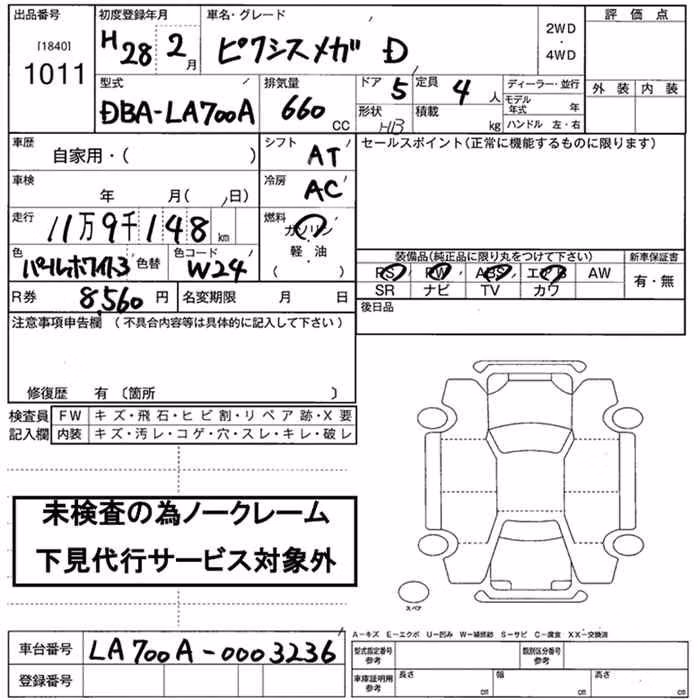 出品番号 初度登録年月 車名・グレード 評価点
[1840]
1011
H28 2月 ピクシスメガ D 2WD・4WD
外装 内装
型式 排気量 ドア 5 定員 4人 ディーラー・並行
DBA-LA700A 660 CC 形状 HB 積載 kg モデル年式 年
ハンドル 左・右
車歴 自家用・( ) シフト AT セールスポイント(正常に機能するものに限ります)
車検 年 月( 日) 冷房 AC
走行 11万9千148km 燃料 ガソリン
軽油
( )
色 パールホワイト3 色替 色コード W24
装備品(純正品に限り丸をつけて下さい) 新車保証書
PS PW ABS エアB AW 有・無
SR ナビ TV カワ
R券 8,560円 名変期限 月 日 後日品
注意事項申告欄 (不具合内容等は具体的に記入して下さい)
修復歴 有 〔箇所 〕
検査員記入欄 FW キズ・飛石・ヒビ割・リペア跡・X要
内装 キズ・汚レ・コゲ・穴・スレ・キレ・破レ
未検査の為ノークレーム
下見代行サービス対象外
スペア
A-キズ E-エクボ U-凹み W-補修跡 S-サビ C-腐食 XX-交換済
車台番号 LA700A-0003236 型式指定番号参考 類別区分番号参考
登録番号 車庫証明用参考 長さ cm 幅 cm 高さ cm